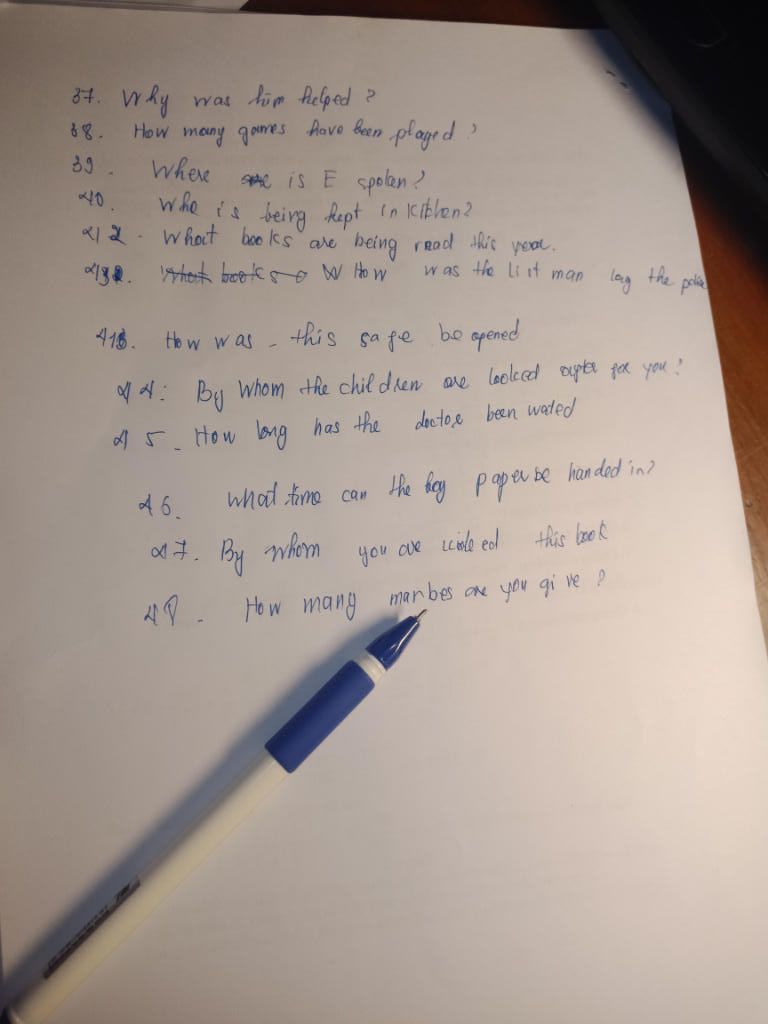 37. Why was him helped?
38. How many games have been played?
39. Where is E spoken?
40. Who is being kept in kitchen?
412. What books are being read this year.
How was the list man by the police
How was this safe be opened
44: By whom the children are looked for you?
45. How long has the doctor been wated
46. What time can the paper be handed in?
47. By whom you are this book
48. How many marbes are you give?